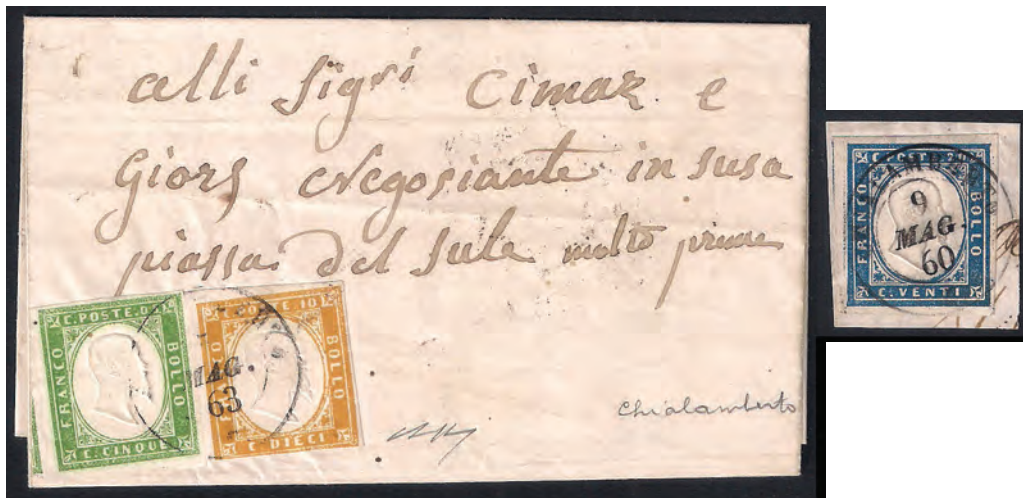 alli Sigri Cimaz e
Giors Negosiante in susa
piassa del sule molto prime
C. POSTE. 05
FRANCO
BOLLO
C. CINQUE
C. POSTE. 10
BOLLO
C. DIECI
MAG.
63
Chialamberto
C. POSTE 20
FRANCO
BOLLO
C. VENTI
9
MAG.
60